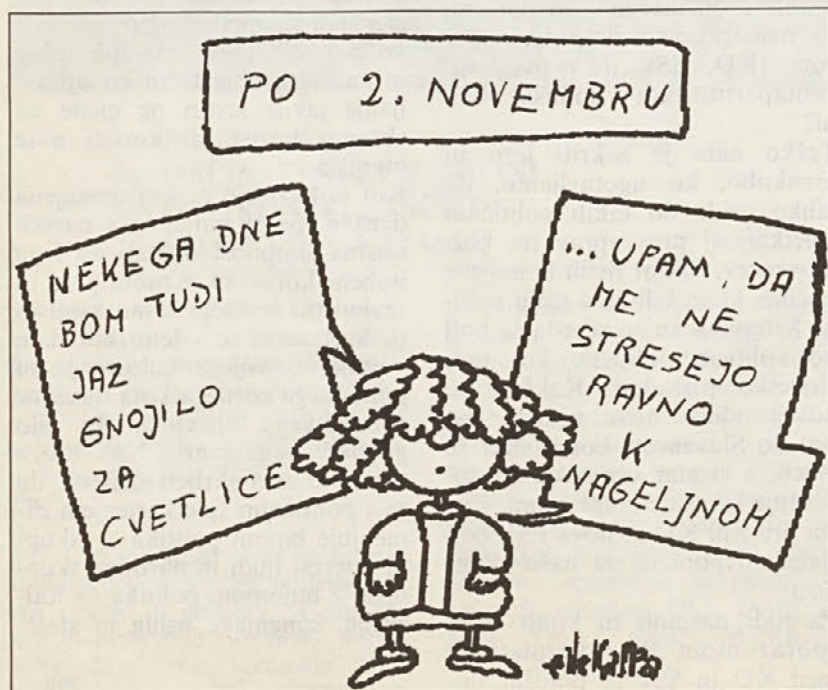 PO 2. NOVEMBRU
NEKEGA DNE
BOM TUDI
JAZ
GNOJILO
ZA
CVETLICE
... UPAM, DA
ME NE
STRESEJO
RAVNO
K
NAGELJNOM